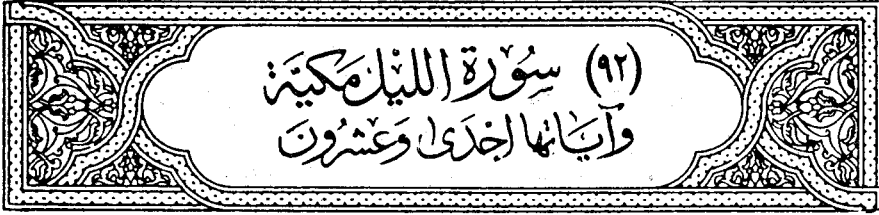 (٩٢) سُورَة اللَّيْل مَكيَّة
وَآيَاتها إحْدَى وَعشْرُونَ